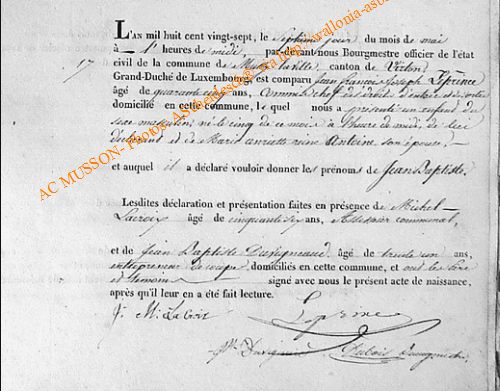 L'AN mil huit cent vingt-sept, le septième jour du mois de mai
à 1 heures de midi, par-devant nous Bourgmestre officier de l'état
17 civil de la commune de Mussy la ville, canton de Virton,
Grand-Duché de Luxembourg, est comparu jean françois joseph Leprince
âgé de quarante cinq ans, commis chef de droit d'entrée et de sortie
domicilié en cette commune, le quel nous a présenté un enfant du
sexe masculin né le cinq de ce mois à heure de midi, de lui
déclarant et de Marie anne reine Antoine son épouse,
et auquel il a déclaré vouloir donner les prénoms de Jean Baptiste.
Lesdites déclaration et présentation faites en présence de Michel
Lacroix âgé de cinquante six ans, Assesseur communal,
et de Jean Baptiste Duvigneaud âgé de trente un ans,
entrepreneur de coupe domiciliés en cette commune, et ont les père
et témoins signé avec nous le présent acte de naissance,
après qu'il leur en a été fait lecture.
M. La Croix Leprince
Duvigneaud Dubois bourgmestre
AC MUSSON- Photos- wallonia-